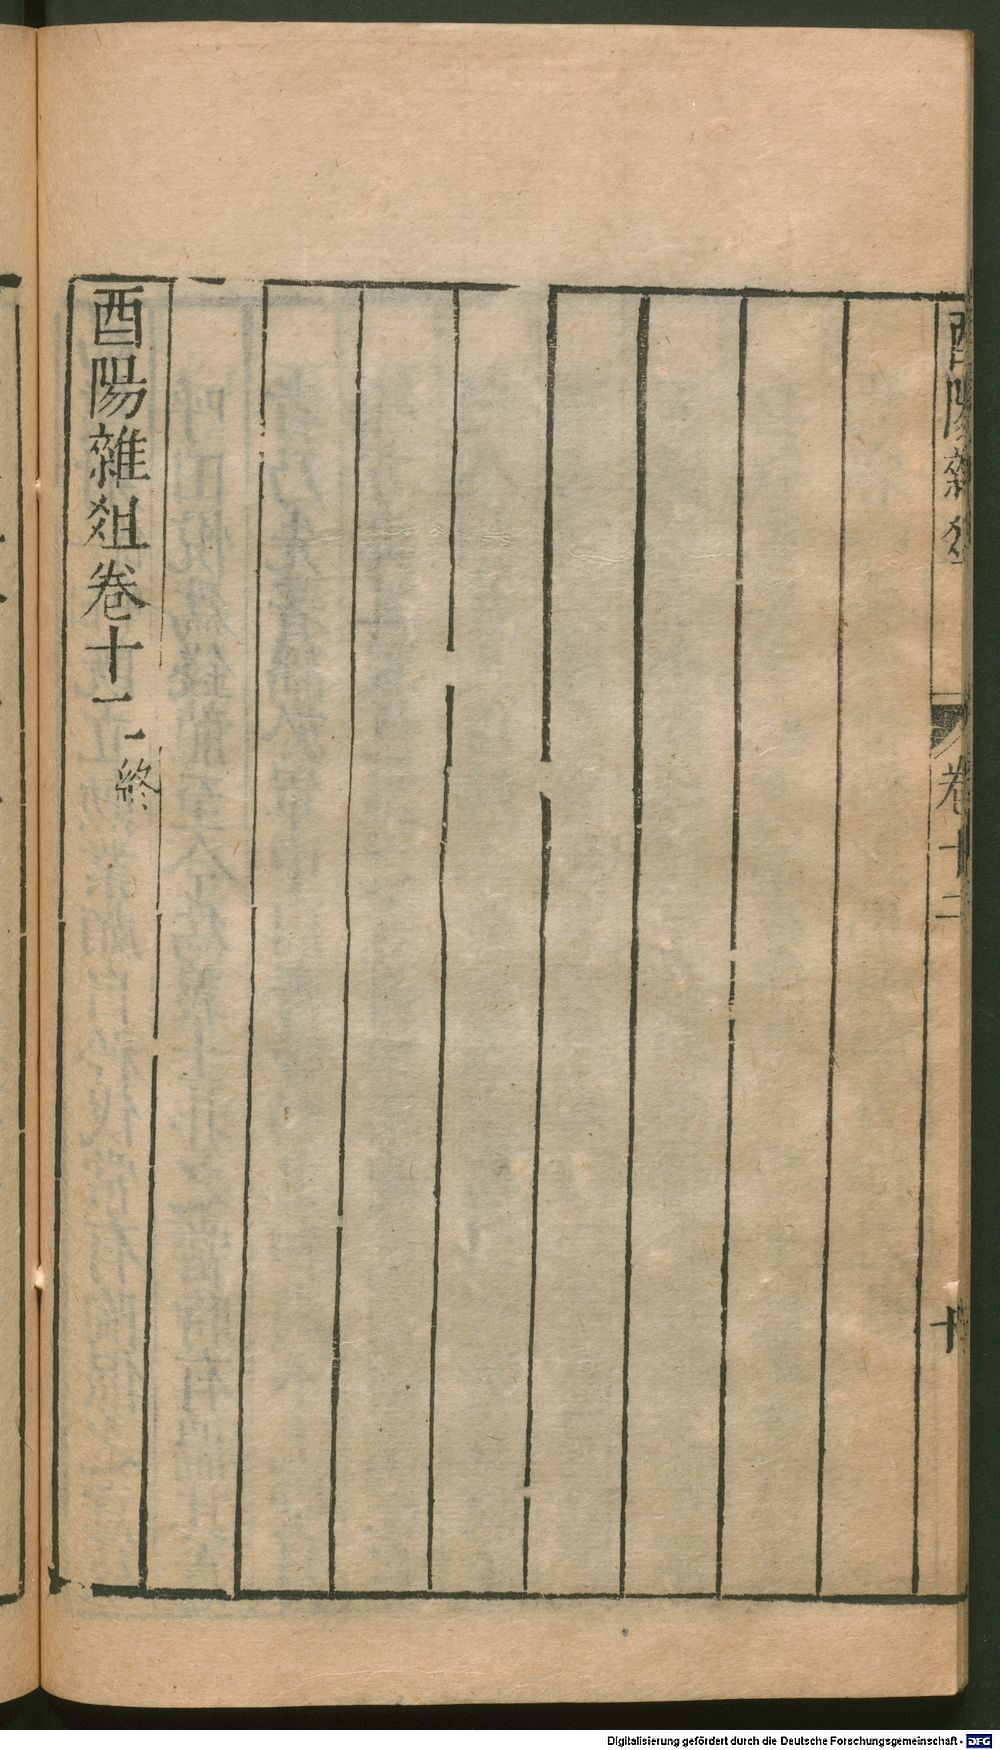 酉陽雜俎
卷十二
十
酉陽雜俎卷十二終
Digitalisierung gefördert durch die Deutsche Forschungsgemeinschaft - DFG